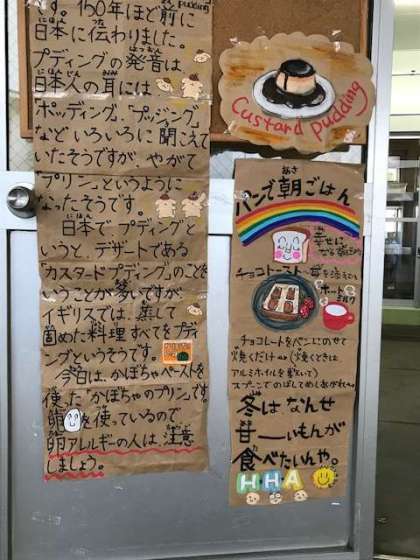 pudding
す。150年ほど前に
日本に伝わりました。
プディングの発音は
日本人の耳には
「ポッディング」、「プッジング」
などいろいろに聞こえて
いたそうですが、やがて
「プリン」というように
なったそうです。
日本で、プディングと
いうと、デザートである
「カスタードプディング」のことを
いうことが多いですが、
イギリスでは、蒸して
固めた料理すべてをプディ
ングというそうです。
今日は、かぼちゃペーストを
使った"かぼちゃのプリン"です。
卵を使っているので、
卵アレルギーの人は、注意
しましょう。
Custard pudding
パンで朝ごはん
幸せに
チョコトースト
ホット
チョコレートをパンにのせて
焼くだけ
アルミホイルを敷いて)
スプーンでのばしてめしあがれ
冬は、なんせ
甘ーいもんが
食べたいんや。
H・H・A